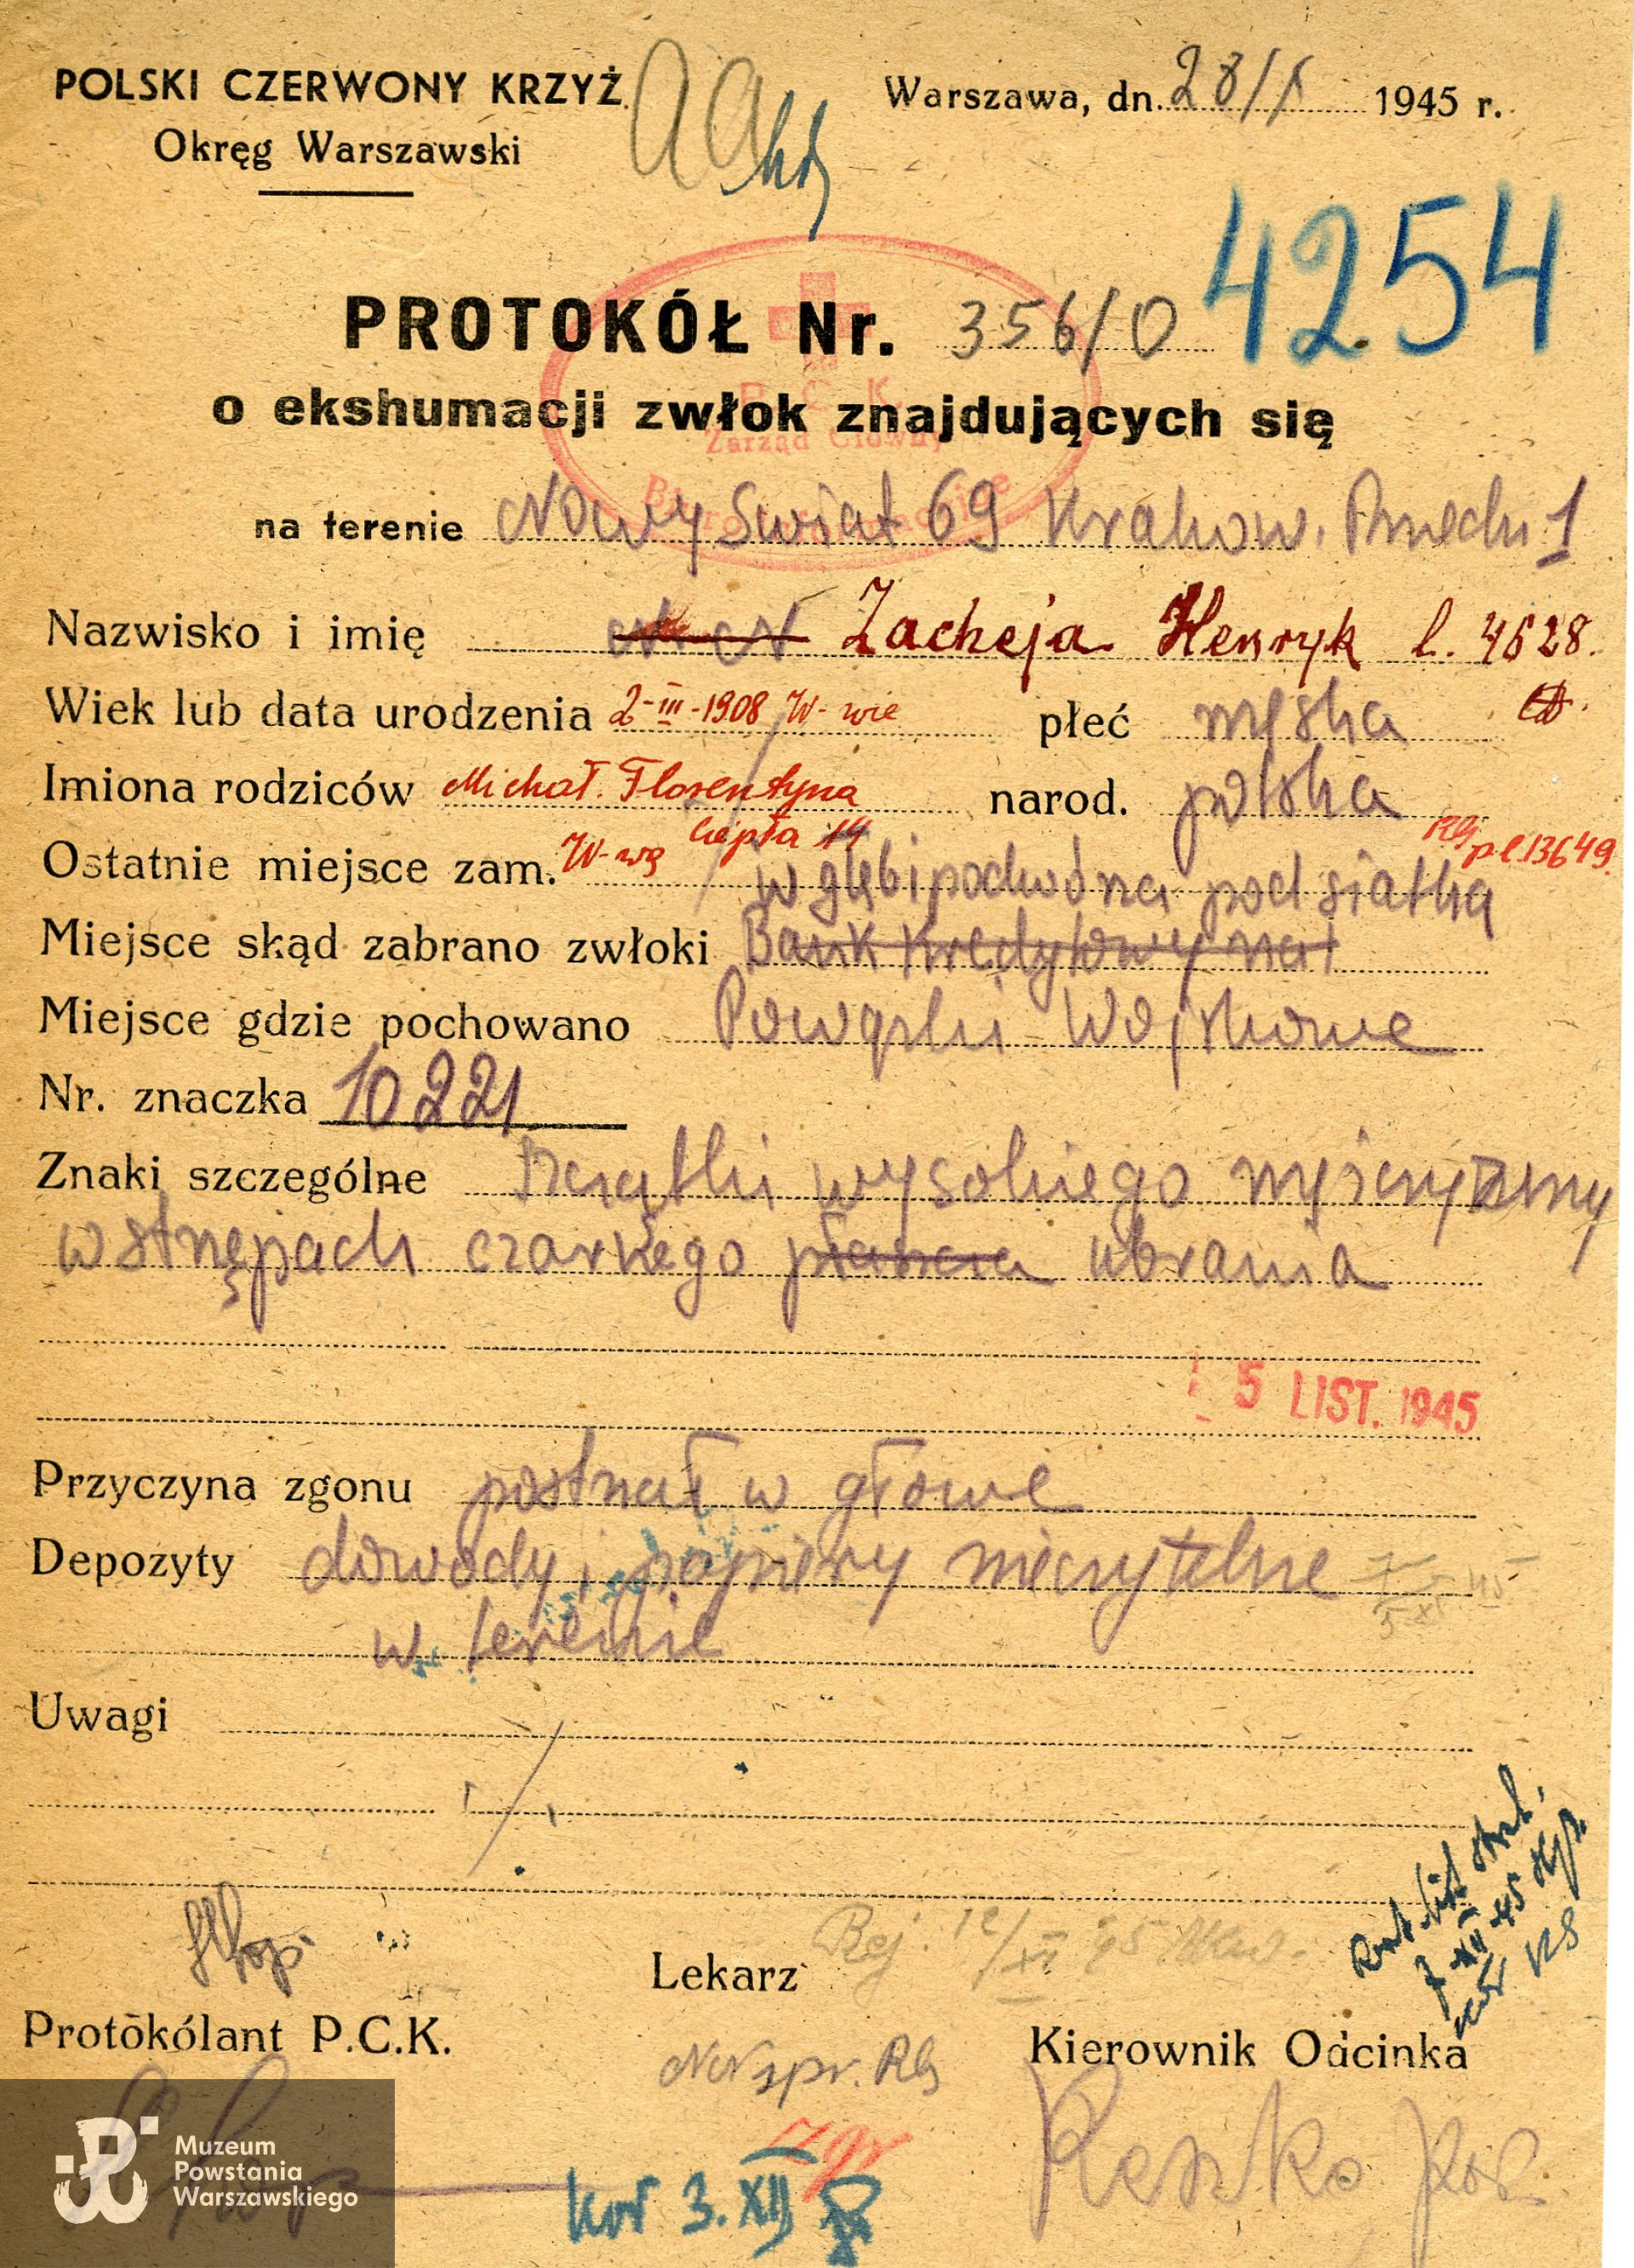 POLSKI CZERWONY KRZYŻ
Okręg Warszawski
Warszawa, dn. 28/X 1945 r.
4254
PROTOKÓŁ Nr. 356/0
o ekshumacji zwłok znajdujących się
P C K
Zarząd Główny
Biuro Informacyjne
na terenie Nowy Swiat 69 Krakow. Przedm 1
Nazwisko i imię N N Zacheja Henryk l. 4628.
Wiek lub data urodzenia 2-III-1908 W-wie płeć męska
Imiona rodziców Michał. Florentyna narod. polska
Ostatnie miejsce zam. W-wę Ciepła 14 p.l.13649.
w głębi podwórza pod siatką
Miejsce skąd zabrano zwłoki Bank Kredytowy
Miejsce gdzie pochowano Powązki Wojskowe
Nr. znaczka 10221
Znaki szczególne Szczątki wysokiego mężczyzny
w strzępach czarnego płaszcza ubrania
5 LIST. 1945
Przyczyna zgonu postrzał w głowę
Depozyty dowody, papiery nieczytelne
w terenie
Uwagi
Rej. 12/XII 45
Lekarz
Protokólant P.C.K.
Kierownik Odcinka
NN spr. RG
7 XII 45
kor 3.XII
Muzeum
Powstania
Warszawskiego